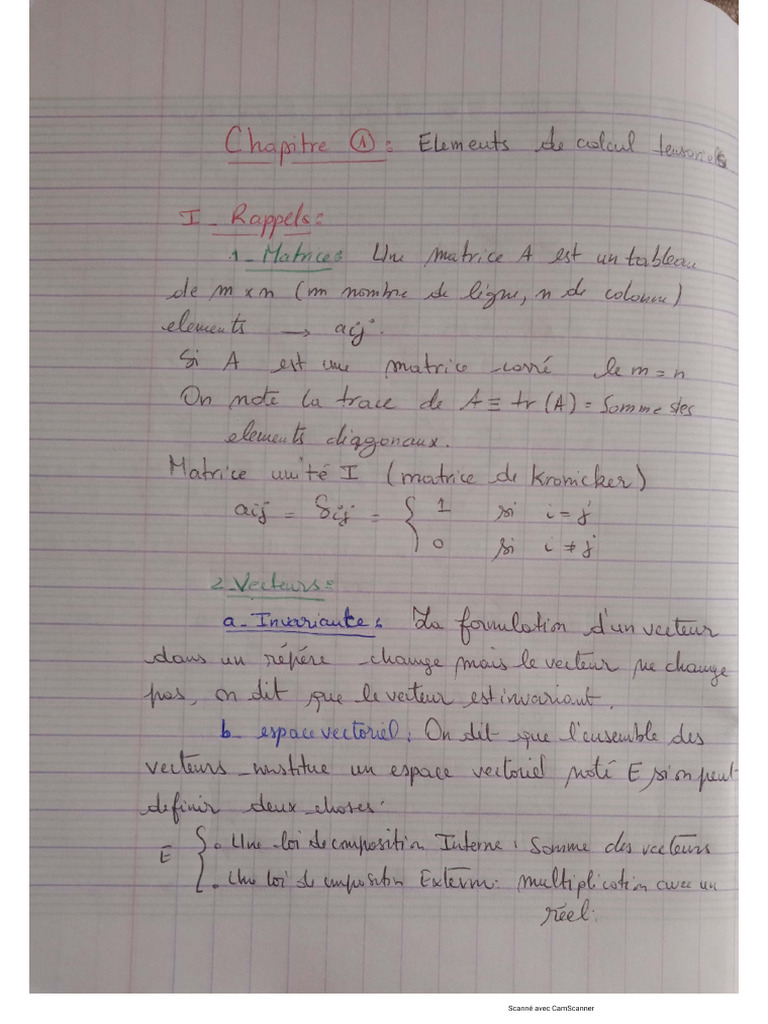 Chapitre ① : Elements de calcul tensoriels
I - Rappels :
1 - Matrices : Une matrice A est un tableau
de m x n (m nombre de ligne, n de colonne)
elements → aij.
Si A est une matrice carré le m = n
On note la trace de A ≡ tr (A) = Somme des
elements diagonaux.
Matrice unité I (matrice de Kronicker)
aij = δij = { 1 si i = j
0 si i ≠ j
2 - Vecteurs :
a - Invariante : La formulation d'un vecteur
dans un répére change mais le vecteur ne change
pas, on dit que le vecteur est invariant.
b - espace vectoriel : On dit que l'ensemble des
vecteurs constitue un espace vectoriel noté E si on peut
definir deux choses :
E { . Une loi de composition Interne : Somme des vecteurs
. Une loi de composition Extern : multiplication avec un
réel.
Scanné avec CamScanner